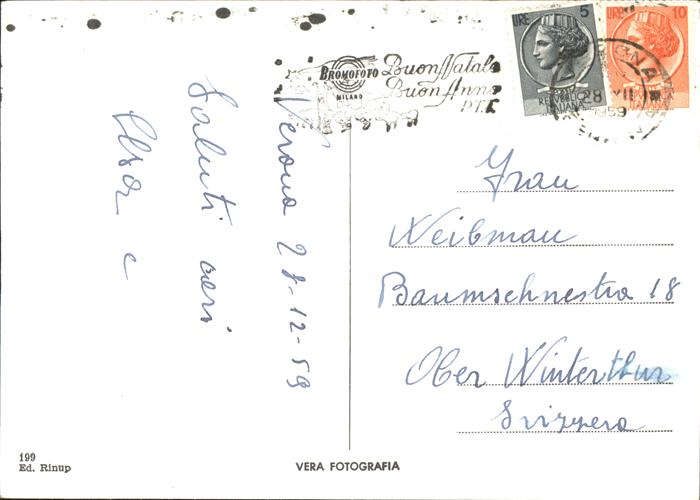 Verona 28-12-59
Saluti cari
Elsa e
BROMOFOTO
MILANO
Buon Natale
Buon Anno
P.T.
LIRE 5
REPUBBLICA
ITALIANA
LIRE 10
28
1959
Frau
Weibmau
Baumschnestra 18
Ober Winterthur
Svizzera
199
Ed. Rinup
VERA FOTOGRAFIA